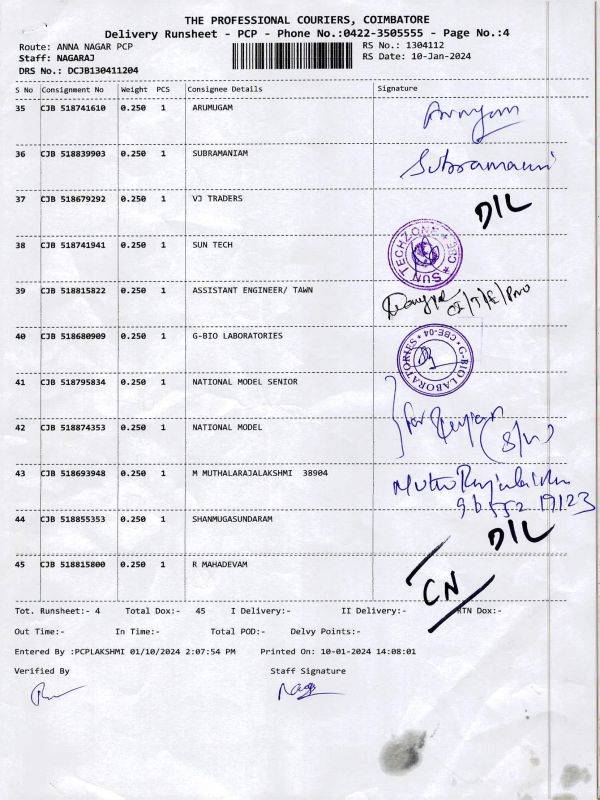 THE PROFESSIONAL COURIERS, COIMBATORE
Delivery Runsheet - PCP - Phone No.:0422-3505555 - Page No.:4
Route: ANNA NAGAR PCP
RS No.: 1304112
Staff: NAGARAJ
RS Date: 10-Jan-2024
DRS No.: DCJB130411204
S No Consignment No Weight PCS Consignee Details Signature
35 CJB 518741610 0.250 1 ARUMUGAM
36 CJB 518839903 0.250 1 SUBRAMANIAM
37 CJB 518679292 0.250 1 VJ TRADERS D/L
38 CJB 518741941 0.250 1 SUN TECH
SUN TECHZONE * CBE *
39 CJB 518815822 0.250 1 ASSISTANT ENGINEER/ TAWN
40 CJB 518680909 0.250 1 G-BIO LABORATORIES
* G-BIO LABORATORIES * CBE-04
41 CJB 518795834 0.250 1 NATIONAL MODEL SENIOR
42 CJB 518874353 0.250 1 NATIONAL MODEL
for
43 CJB 518693948 0.250 1 M MUTHALARAJALAKSHMI 38904
44 CJB 518855353 0.250 1 SHANMUGASUNDARAM D/L
45 CJB 518815800 0.250 1 R MAHADEVAM CN
Tot. Runsheet:- 4 Total Dox:- 45 I Delivery:- II Delivery:- RTN Dox:-
Out Time:- In Time:- Total POD:- Delvy Points:-
Entered By :PCPLAKSHMI 01/10/2024 2:07:54 PM Printed On: 10-01-2024 14:08:01
Verified By Staff Signature